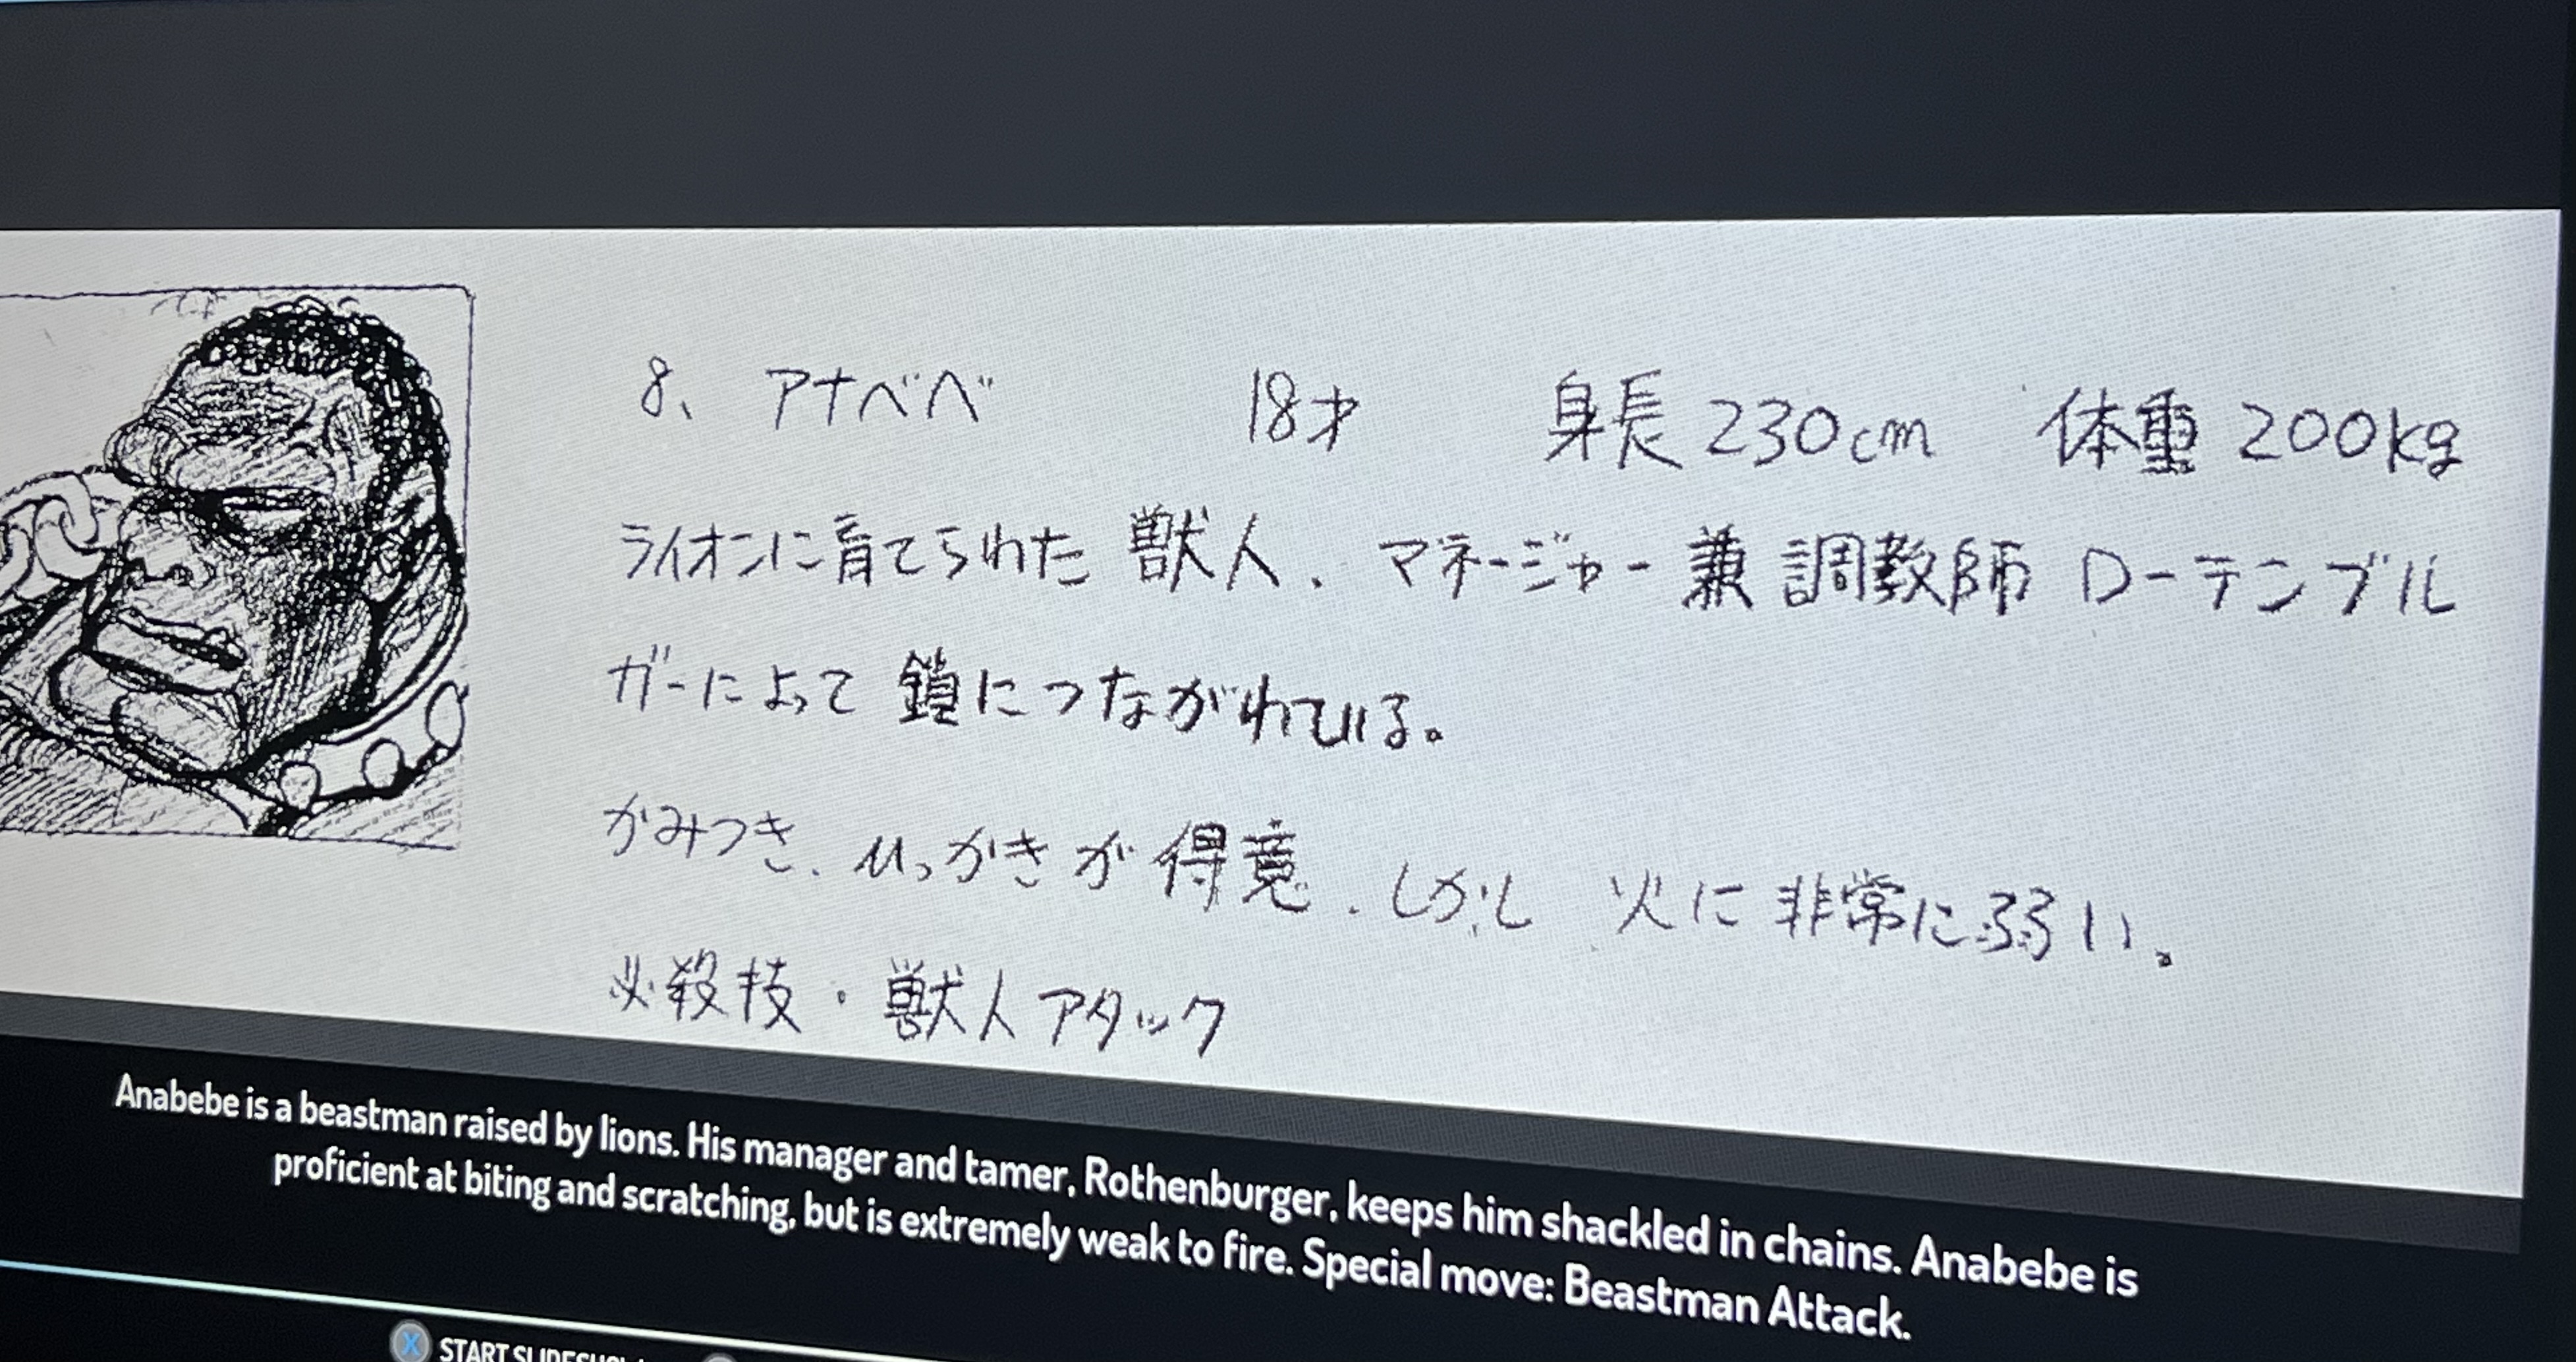 8、 アナベベ 18才 身長 230cm 体重 200kg
ライオンに育てられた 獣人、マネージャー兼 調教師 ローテンブル
ガーによって 鎖につながれている。
かみつき、ひっかきが得意、しかし 火に非常に弱い。
必殺技・獣人アタック
Anabebe is a beastman raised by lions. His manager and tamer, Rothenburger, keeps him shackled in chains. Anabebe is
proficient at biting and scratching, but is extremely weak to fire. Special move: Beastman Attack.
X START